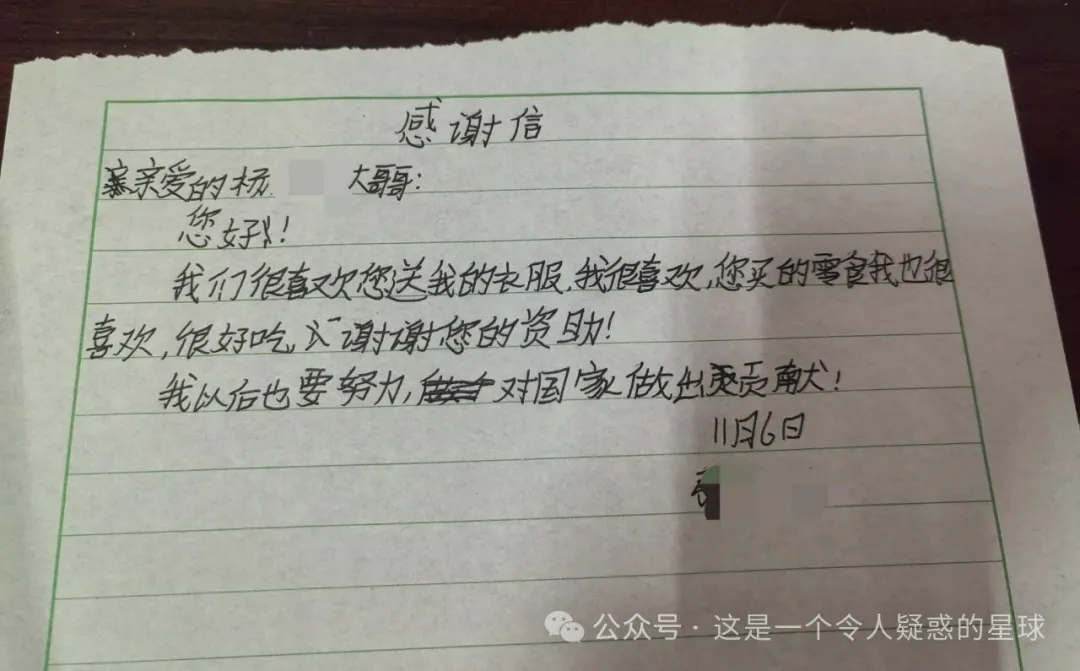 感谢信
亲爱的杨 大哥哥:
您好!
我们很喜欢您送我的衣服,我很喜欢,您买的零食我也很
喜欢,很好吃,谢谢您的资助!
我以后也要努力,对国家做出贡献!
11月6日
公众号·这是一个令人疑惑的星球